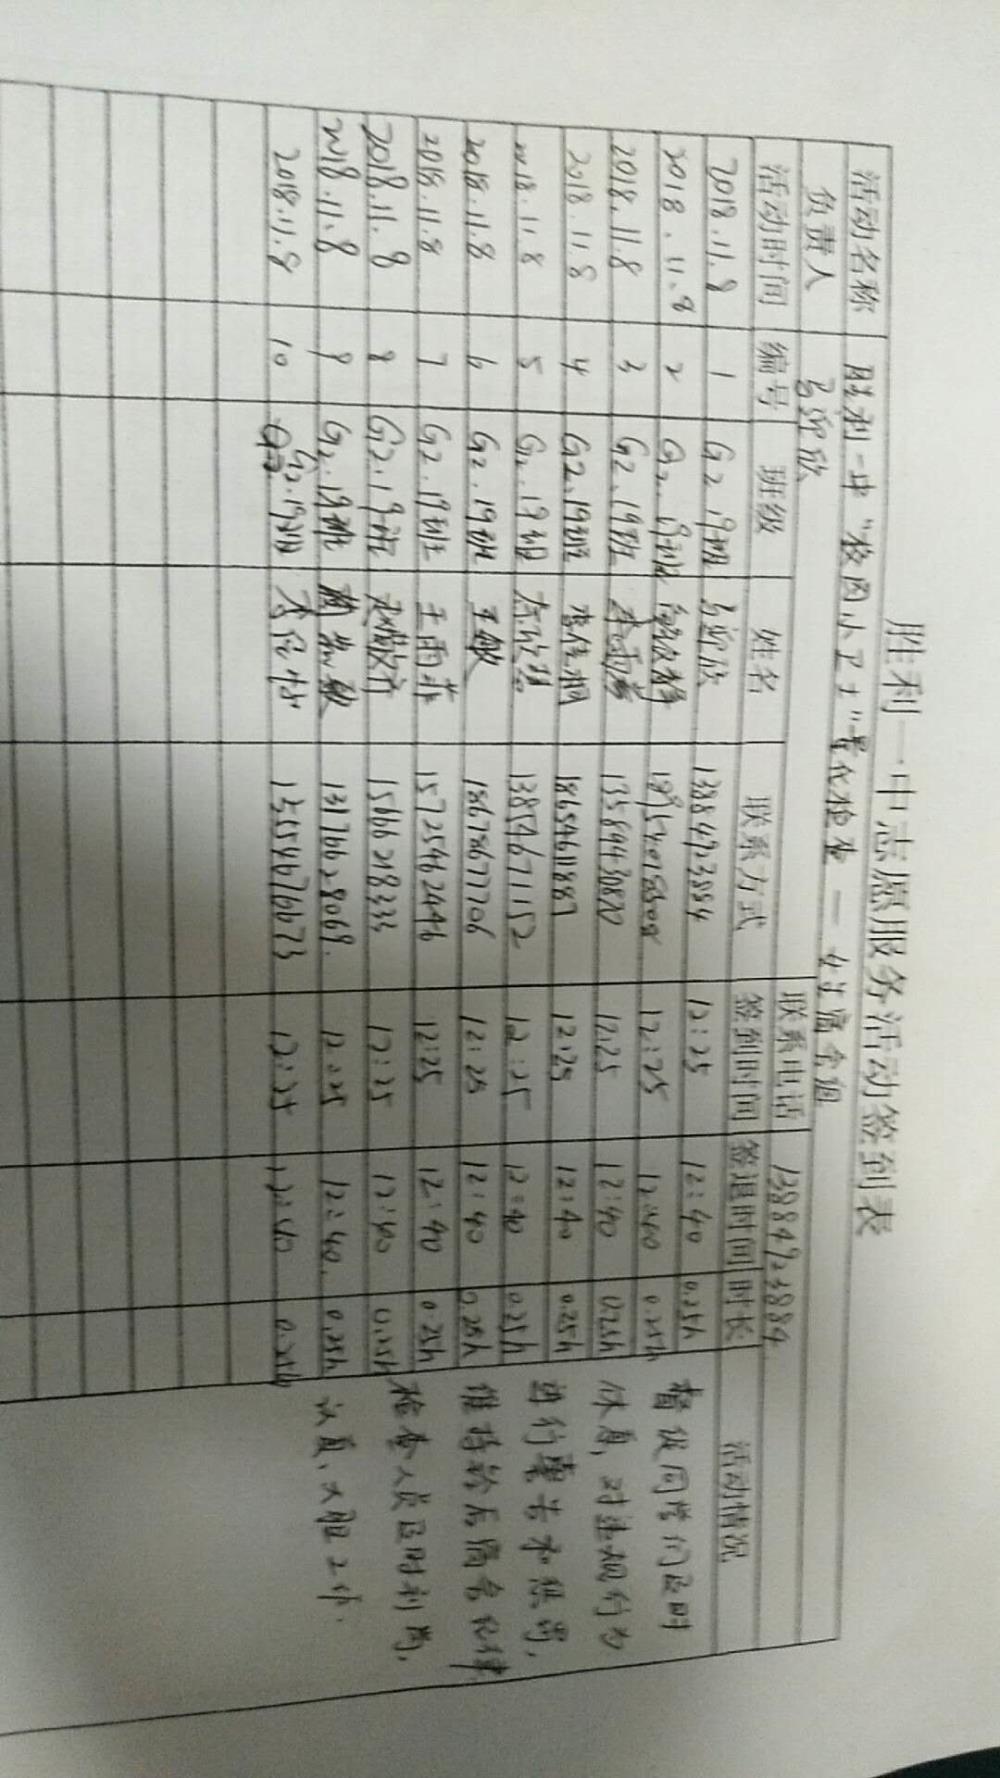 胜利一中志愿服务活动签到表
活动名称 胜利一中"校园小卫士"量化检查 — 女生宿舍组
负责人 联系电话 13884923884
活动时间 编号 班级 姓名 联系方式 签到时间 签退时间 时长 活动情况
2018.11.8 1 G2.19班 13884923884 12:25 12:40 0.25h
2018.11.8 2 G2.19班 12:25 12:40 0.25h
2018.11.8 3 G2.19班 12:25 12:40 0.25h
2018.11.8 4 G2.19班 李佳桐 18654611887 12:25 12:40 0.25h
2018.11.8 5 G2.19班 13854671152 12:25 12:40 0.25h
2018.11.8 6 G2.19班 王敏 18678677706 12:25 12:40 0.25h
2018.11.8 7 G2.19班 王雨菲 15725462496 12:25 12:40 0.25h
2018.11.8 8 G2.19班 15666218333 12:25 12:40 0.25h
2018.11.8 9 G2.19班 13176628068. 12:25 12:40. 0.25h
2018.11.8 10 G2.19班 12:25 12:40 0.25h
督促同学们及时
休息,对违规行为
进行警告和惩罚,
维持给后宿舍纪律
检查人员及时到岗,
认真、大胆工作.